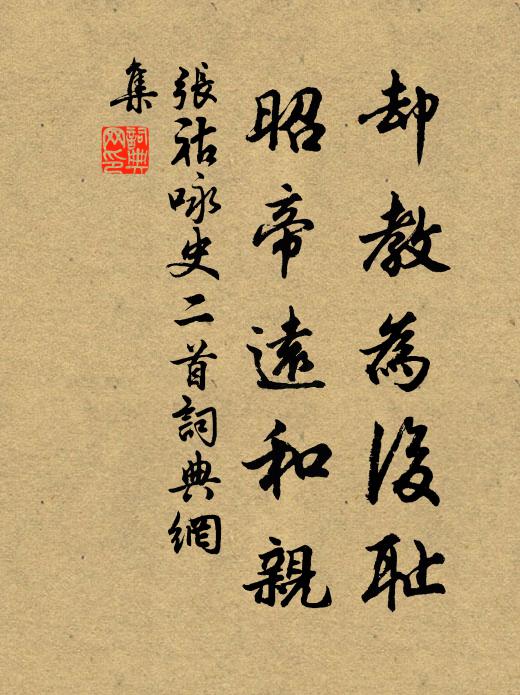 却教為後耻
昭帝遠和親
張祜咏史二首詞典網
集
詞典網印